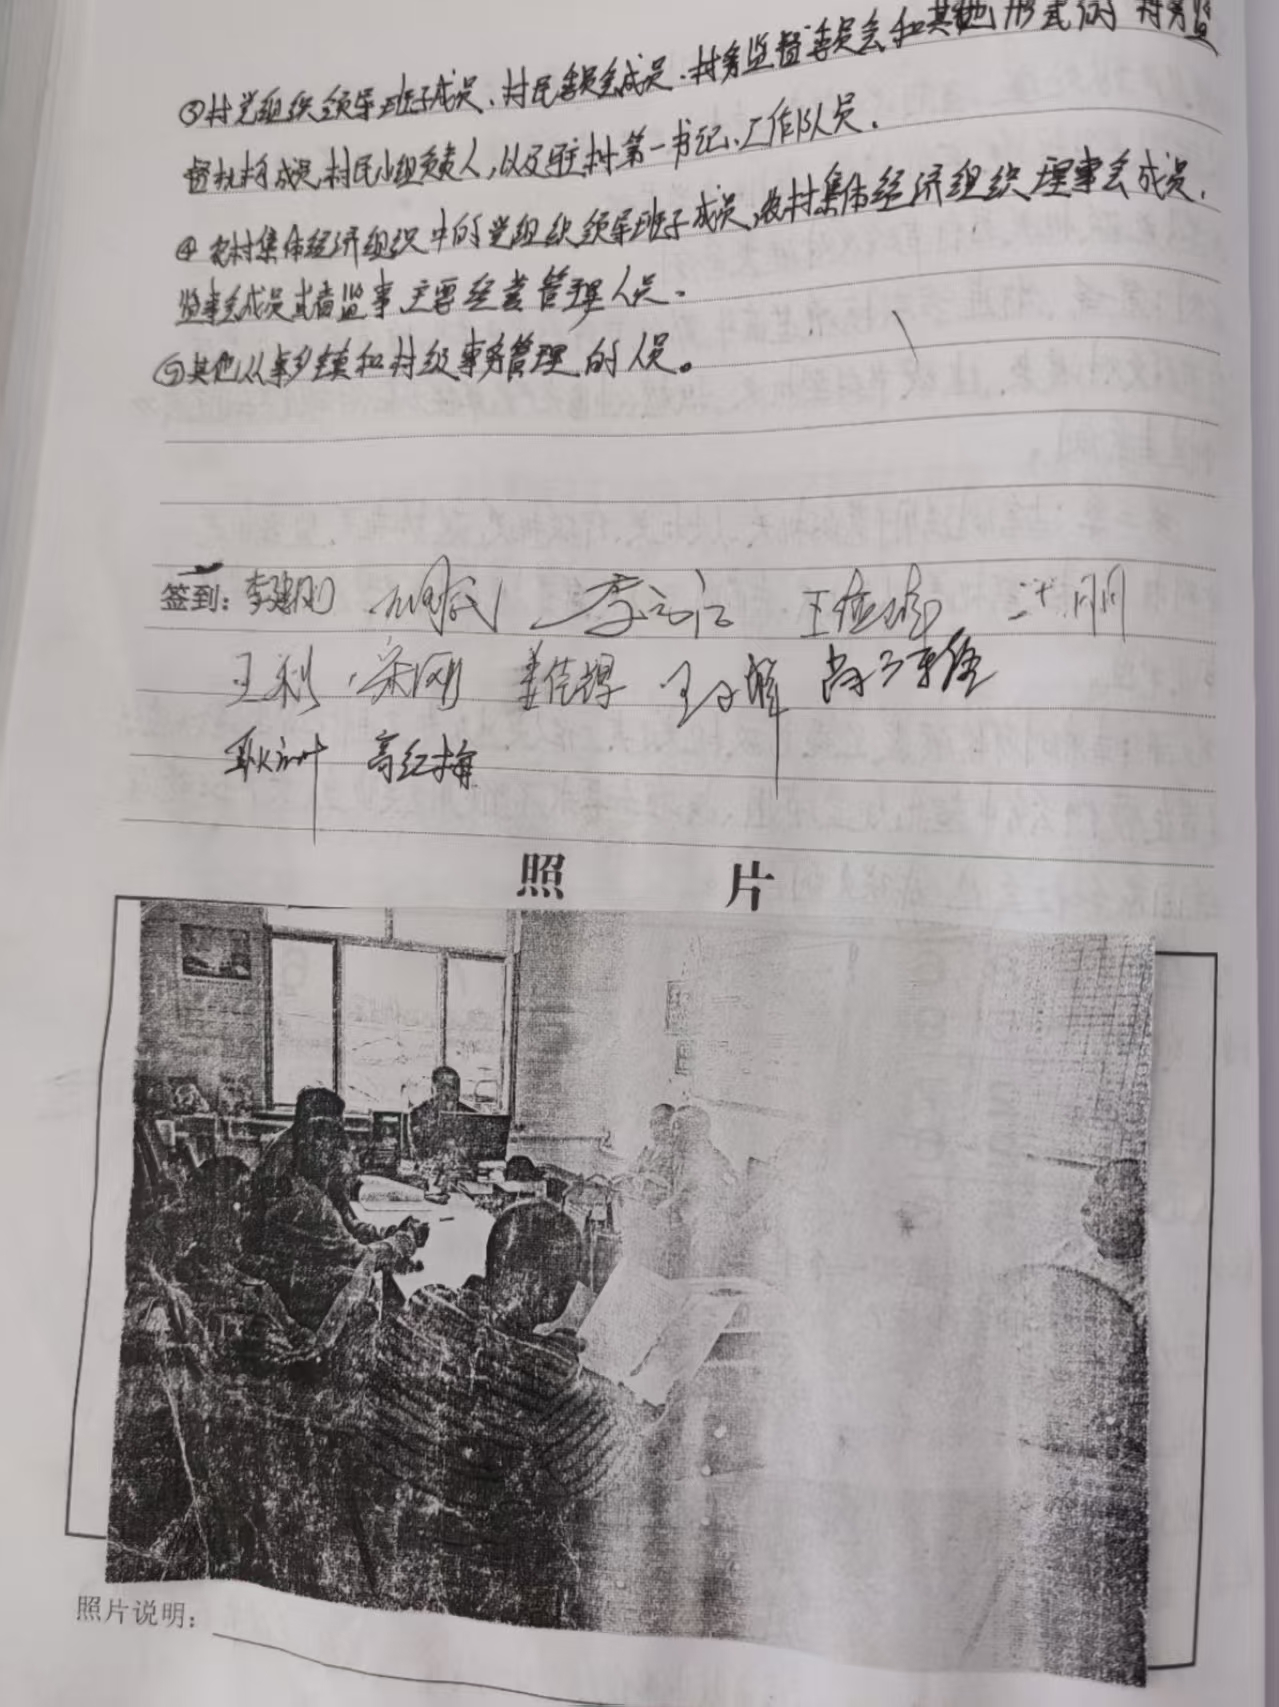 ③村党组织领导班子成员、村民委员会成员、村务监督委员会和其他形式的村务监
督机构成员,村民小组负责人,以及驻村第一书记、工作队员。
④农村集体经济组织中的党组织领导班子成员,农村集体经济组织理事会成员,
监事会成员或者监事,主要经营管理人员。
⑤其他从事乡镇和村级事务管理的人员。
签到:李建刚
王利 宋刚 姜佳锝
高红梅
照 片
照片说明: